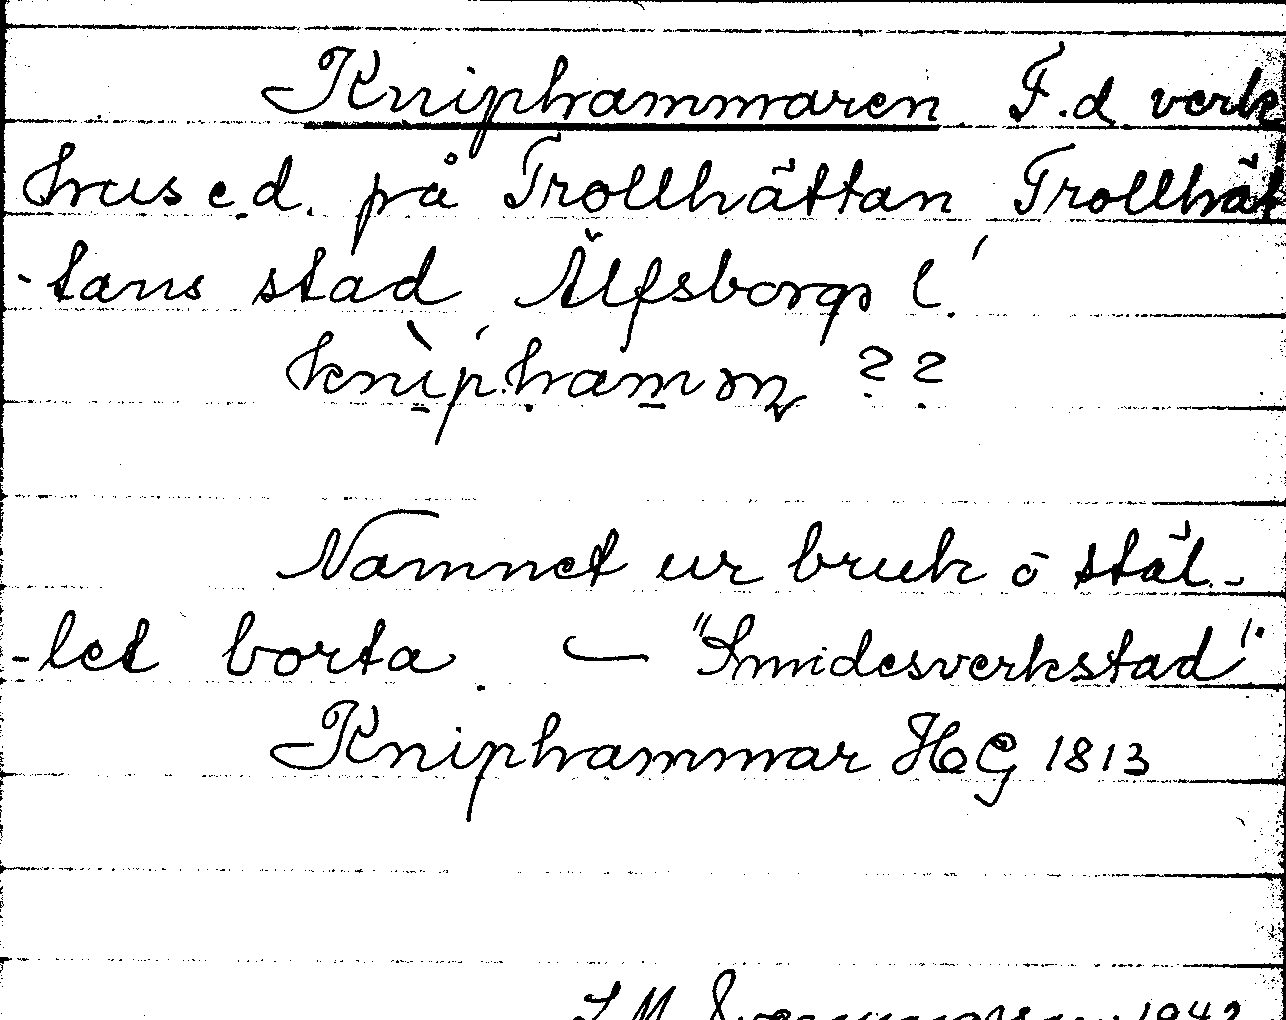 Kniphammaren F.d verk
hus e.d. på Trollhättan Trollhät
-tans stad Älfsborgs l.
Namnet ur bruk o stäl-
-let borta. — "Smidesverkstad".
Kniphammar HG 1813
1942